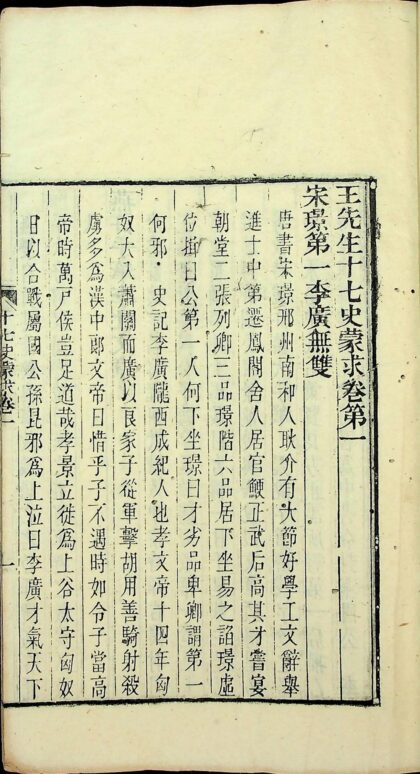 王先生十七史蒙求卷第一
宋璟第一李廣無雙
唐書宋璟邢州南和人耿介有大節好學工文辭舉
進士中第遷鳳閣舍人居官鯁正武后高其才嘗宴
朝堂二張列卿三品璟階六品居下坐易之諂璟虛
位揖曰公第一人何下坐璟曰才劣品卑卿謂第一
何邪史記李廣隴西成紀人也孝文帝十四年匈
奴大入蕭關而廣以良家子從軍擊胡用善騎射殺
虜多為漢中郎文帝曰惜乎子不遇時如令子當高
帝時萬戶侯豈足道哉孝景立徙為上谷太守匈奴
日以合戰屬國公孫昆邪為上泣曰李廣才氣天下
十七史蒙求卷一
一